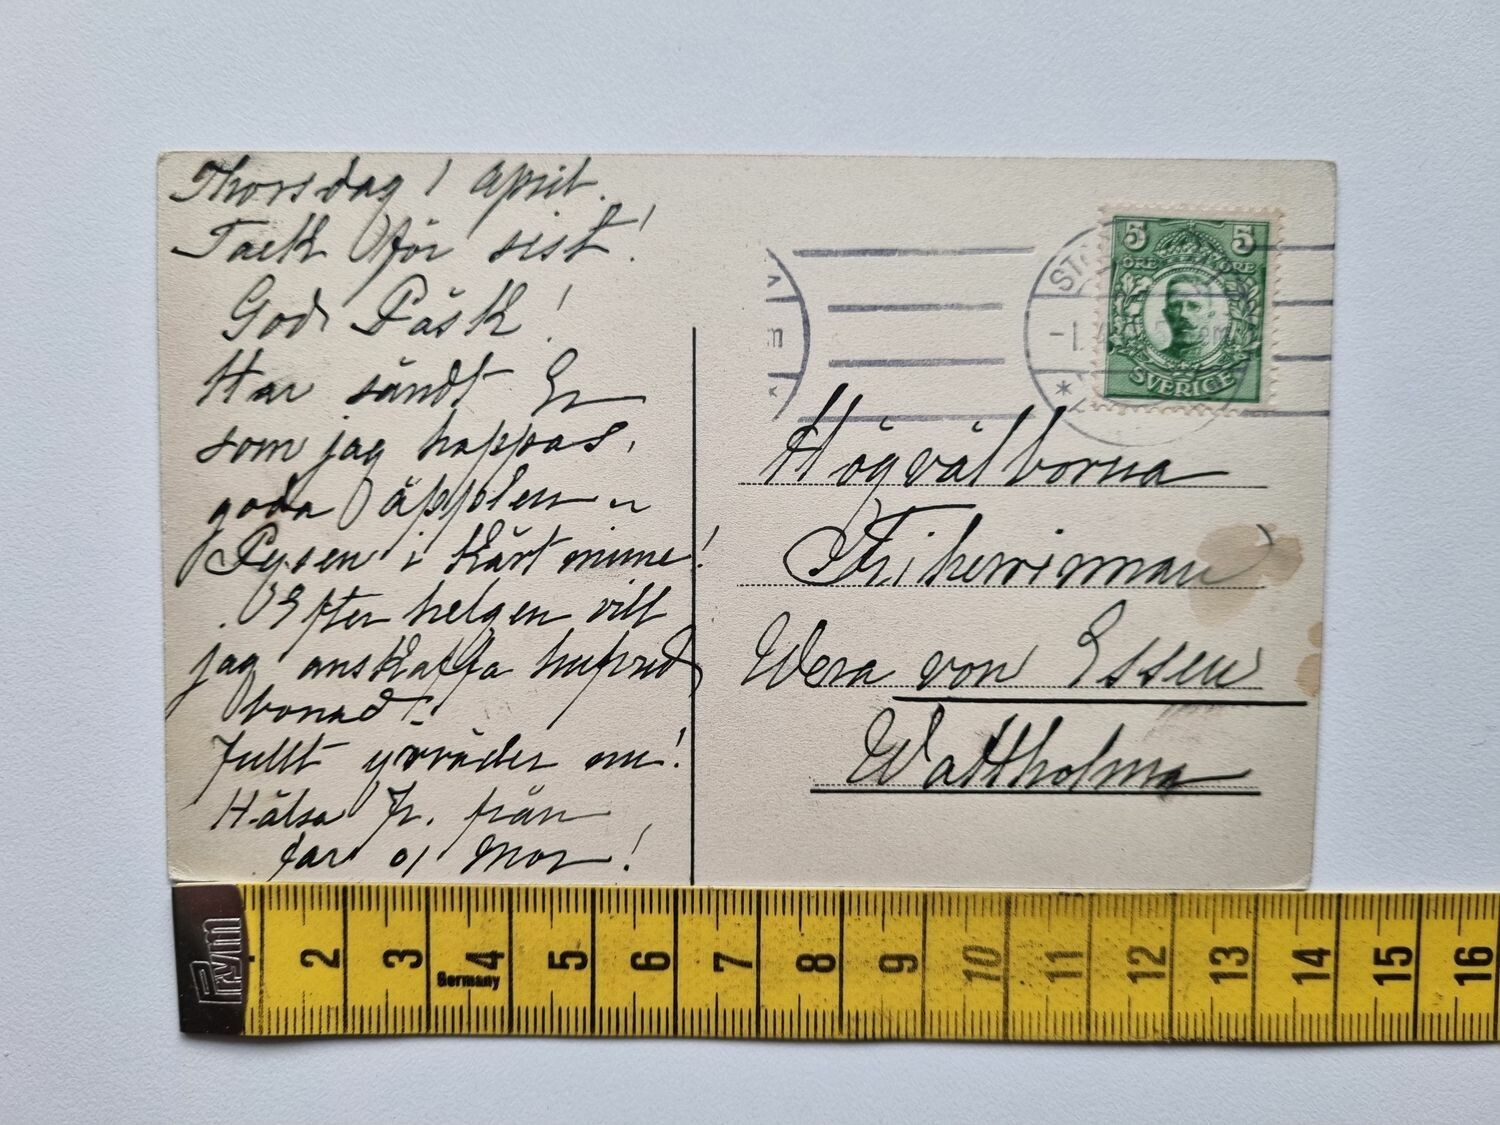 Thorsdag 1 April.
Tack för sist!
God Påsk!
Har sändt Er
som jag hoppas,
goda äpplen
Pysen i kärt minne!
Efter helgen vill
jag anskaffa hufvud
bonad
Fullt yrväder nu!
Hälsa Fr. från
Far o Mor!
ST
-1. 4
5
5
ÖRE
ÖRE
SVERIGE
Högvälborna
Friherrinnan
Wera von Essen
Wattholma
Prym
2 3 4 5 6 7 8 9 10 11 12 13 14 15 16
Germany